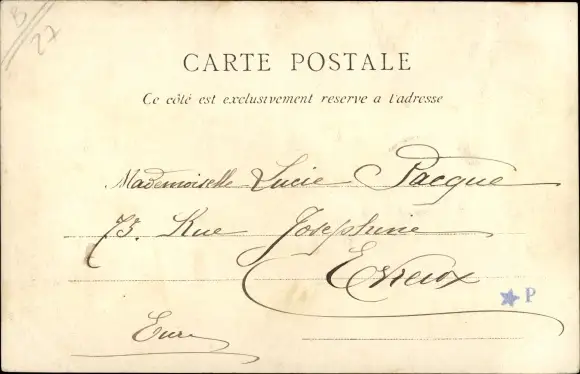 B/27
CARTE POSTALE
Ce côté est exclusivement reserve a l'adresse
Mademoiselle Lucie Pacque
73. Rue Josephine
Evreux
P
Eure